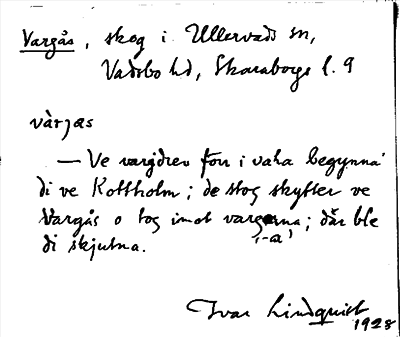 Vargås, skog i Ullervads sn,
Vadsbo hd, Skaraborgs l. 9
vàrjas
— Ve vargdrev forr i vaha begynna'
di ve Kottholm; de stog skytter ve
Vargås o tog imot vargarna; där ble
,-a'
di skjutna.
Ivar Lindquist
1928